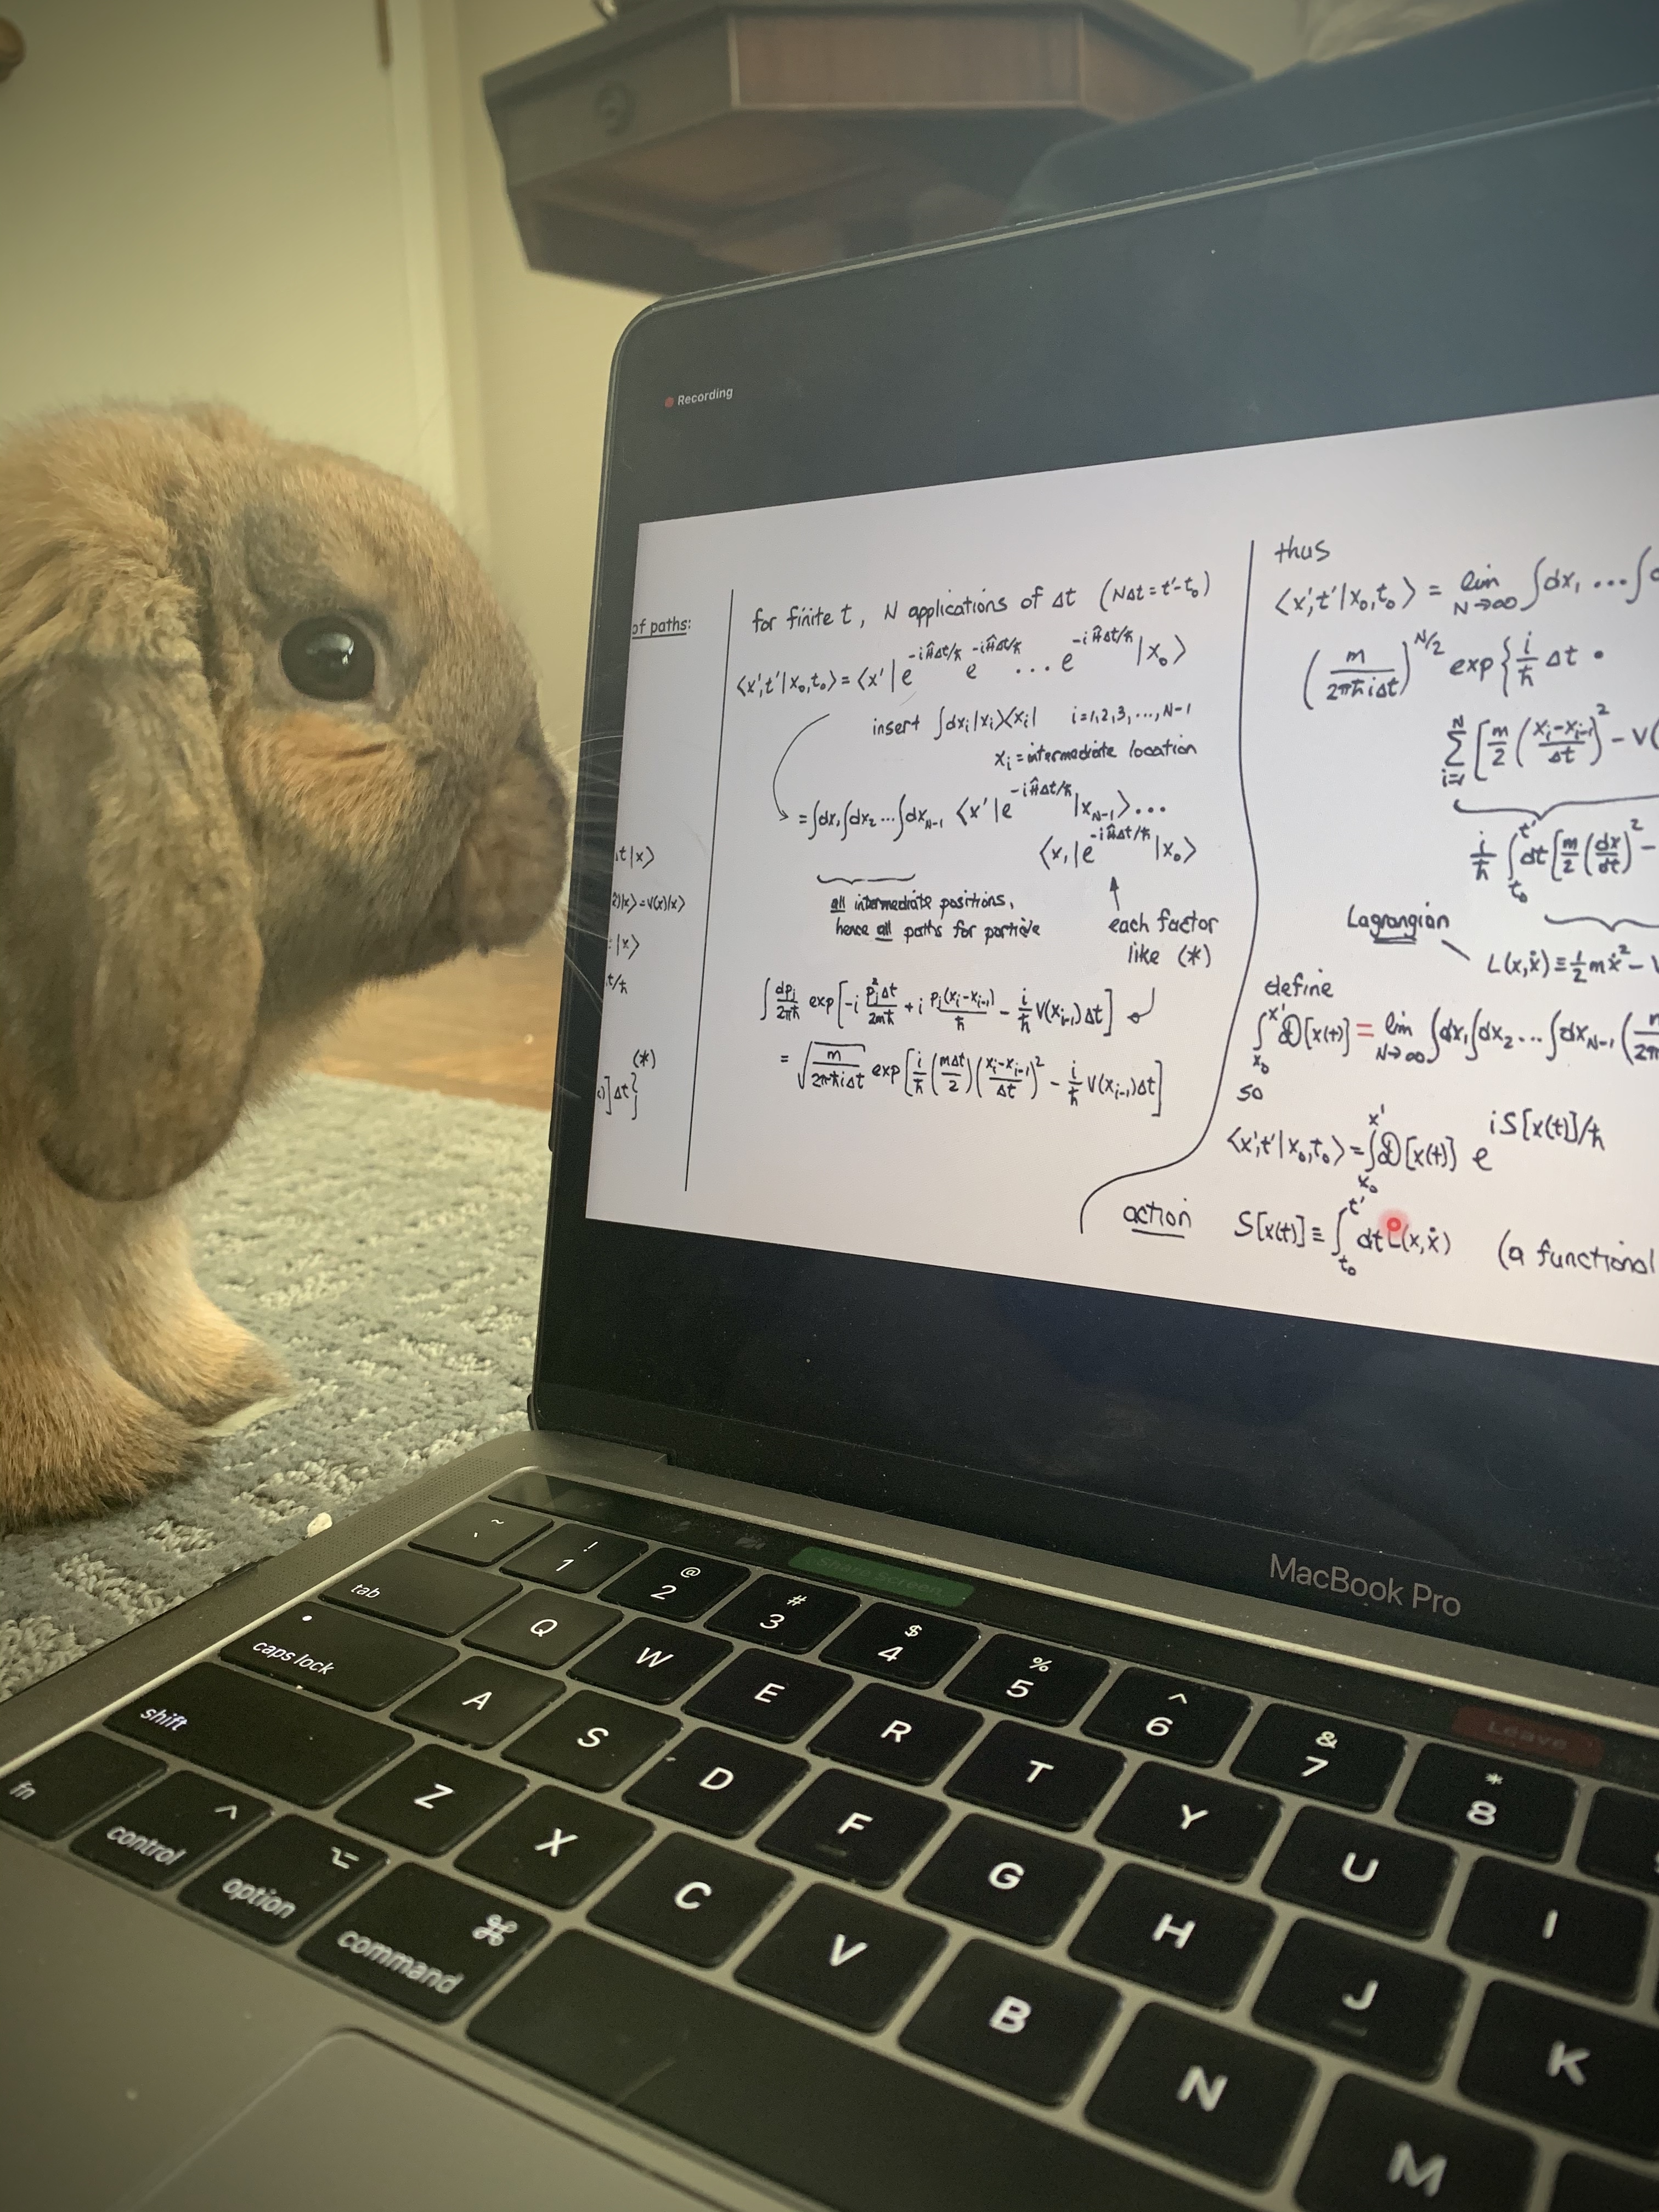 Recording
of paths:
t|x⟩
2)|x⟩=V(x)|x⟩
|x⟩
t/ħ
(*)
]Δt}
for finite t, N applications of Δt (NΔt=t'-t₀)
⟨x',t'|x₀,t₀⟩=⟨x'|e^{-iĤΔt/ħ} e^{-iĤΔt/ħ} ... e^{-iĤΔt/ħ}|x₀⟩
insert ∫dxᵢ|xᵢ⟩⟨xᵢ| i=1,2,3,...,N-1
xᵢ=intermediate location
=∫dx₁∫dx₂...∫dx_{N-1} ⟨x'|e^{-iĤΔt/ħ}|x_{N-1}⟩...
⟨x₁|e^{-iĤΔt/ħ}|x₀⟩
all intermediate positions,
hence all paths for particle
each factor
like (*)
∫ dpⱼ/2πħ exp[-i pⱼ²Δt/2mħ + i pⱼ(xᵢ-xᵢ₋₁)/ħ - i/ħ V(xᵢ₋₁)Δt]
= √(m/2πħiΔt) exp[i/ħ (mΔt/2)((xᵢ-xᵢ₋₁)/Δt)² - i/ħ V(xᵢ₋₁)Δt]
thus
⟨x',t'|x₀,t₀⟩ = lim_{N→∞} ∫dx₁ ...∫d
(m/2πħiΔt)^{N/2} exp{i/ħ Δt •
∑_{i=1}^{N} [m/2 ((xᵢ-xᵢ₋₁)/Δt)² - V(
i/ħ ∫_{t₀}^{t'} dt[m/2 (dx/dt)² -
Lagrangian
L(x,ẋ)≡½mẋ²-V
define
∫_{x₀}^{x'} 𝒟[x(t)] = lim_{N→∞} ∫dx₁∫dx₂...∫dx_{N-1} (m/2π
so
⟨x',t'|x₀,t₀⟩=∫_{x₀}^{x'} 𝒟[x(t)] e^{iS[x(t)]/ħ}
action S[x(t)]≡∫_{t₀}^{t'} dt L(x,ẋ) (a functional
MacBook Pro
Share Screen
Leave
~ `
! 1
@ 2
# 3
$ 4
% 5
^ 6
& 7
* 8
tab Q W E R T Y U I
caps lock A S D F G H J K
shift Z X C V B N M
fn
^ control
⌥ option
⌘ command